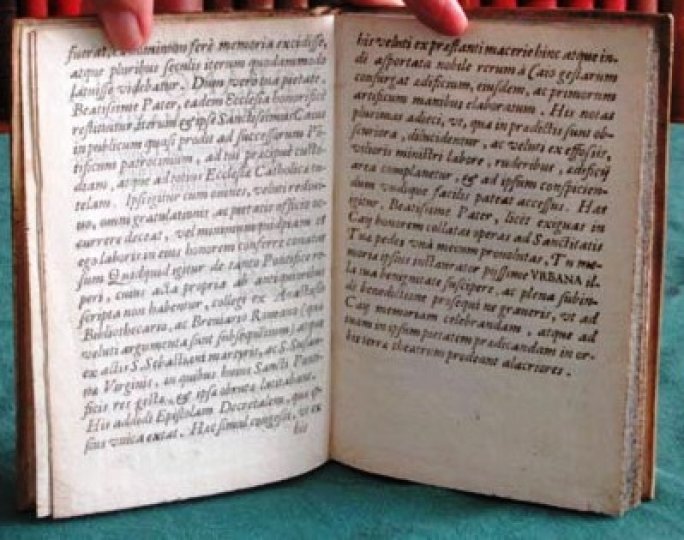 fuerat, & omnium ferè memoria excidisse,
atque pluribus seculis iterum quodammodo
latuisse videbatur. Dum verò tua pietate,
Beatissime Pater, eadem Ecclesia honorificè
restituitur, iterum & ipse Sanctissimus Caius
in publicum quasi prodit ad successorum Pō-
tificum patrocinium, ad tui præcipuè custo-
diam, atque ad totius Ecclesiæ Catholicæ tu-
telam. Ipsi igitur cum omnes, veluti rediui-
uo, omni gratulationis, ac pietatis officio oc-
currere deceat, vel minimum quidpiam et
ego laboris in eius honorem conferre conatus
sum. Quidquid igitur de tanto Pontifice re-
peri, cuius acta propria ab antiquioribus
scripta non habentur, collegi ex Anastasio
Bibliothecario, ac Breuiario Romano (quæ
veluti argumenta sunt subsequētium) atque
ex actis S. Sebastiani martyris, ac S. Susan-
næ Virginis, in quibus huius Sancti Ponti-
ficis res gestæ, & ipsæ obrutæ latitabant.
His addidi Epistolam Decretalem, quæ ip-
sius vnica extat. Hæc simul congessi, vt ex
his
his veluti ex præstanti macerie hinc atque in-
di asportata nobile rerum à Caio gestarum
consurgat ædificium, eiusdem, ac primorum
artificum manibus elaboratum. His notas
plurimas adieci, vt, quæ in prædictis sunt ob-
scuriora, dilucidentur, ac veluti ex effossis,
vilioris ministri labore, ruderibus, ædificij
area complanetur, & ad ipsum conspicien-
dum vndique facilis pateat accessus. Has
igitur, Beatissime Pater, licet exiguas in
Caij honorem collatas operas ad Sanctitatis
Tuæ pedes vnà mecum prouolutas, Tu me-
moriæ ipsius instaurator pijssime VRBANA il-
la tua benignitate suscipere, ac plena subin-
di benedictione prosequi ne graueris, vt ad
Caij memoriam celebrandam, atque ad
tuam in ipsum pietatem prædicandam in or-
bis terræ theatrum prodeant alacriores.